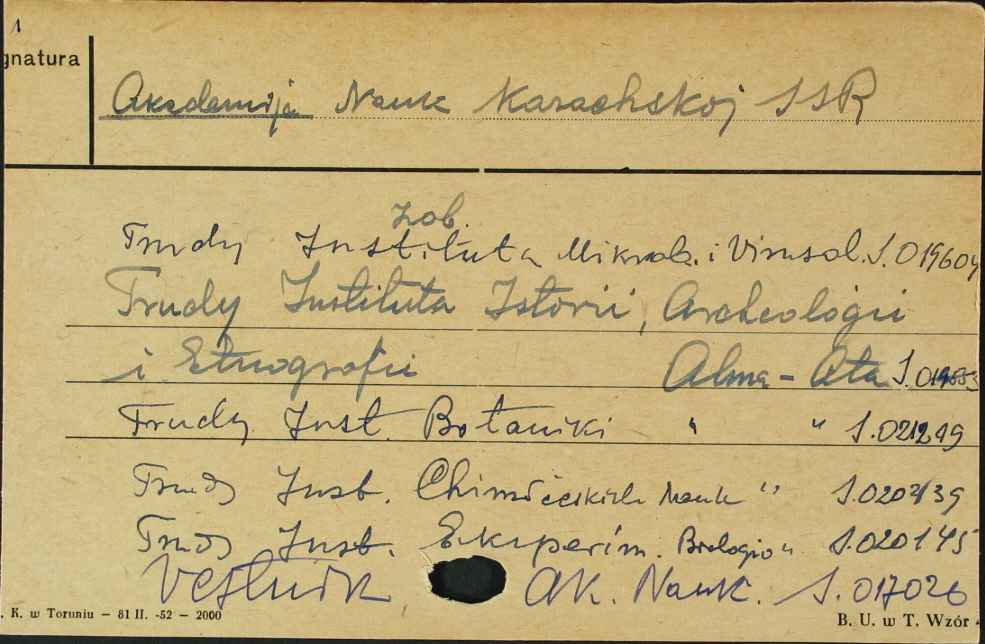 1
gnatura
Akademija Nauk Kazachskoj SSR
zob.
Trudy Instituta Mikrob. i Virusol. S.019604
Trudy Instituta Istorii, Archeologii
i Etnografii Alma-Ata
Trudy Inst. Botaniki " " S.021249
Trudy Inst. Chimičeskich Nauk " S.020239
Trudy Inst. Eksperim. Biologio " S.020145
Vestnik Ak. Nauk. S.017026
. K. w Toruniu — 81 II. -52 — 2000
B. U. w T. Wzór